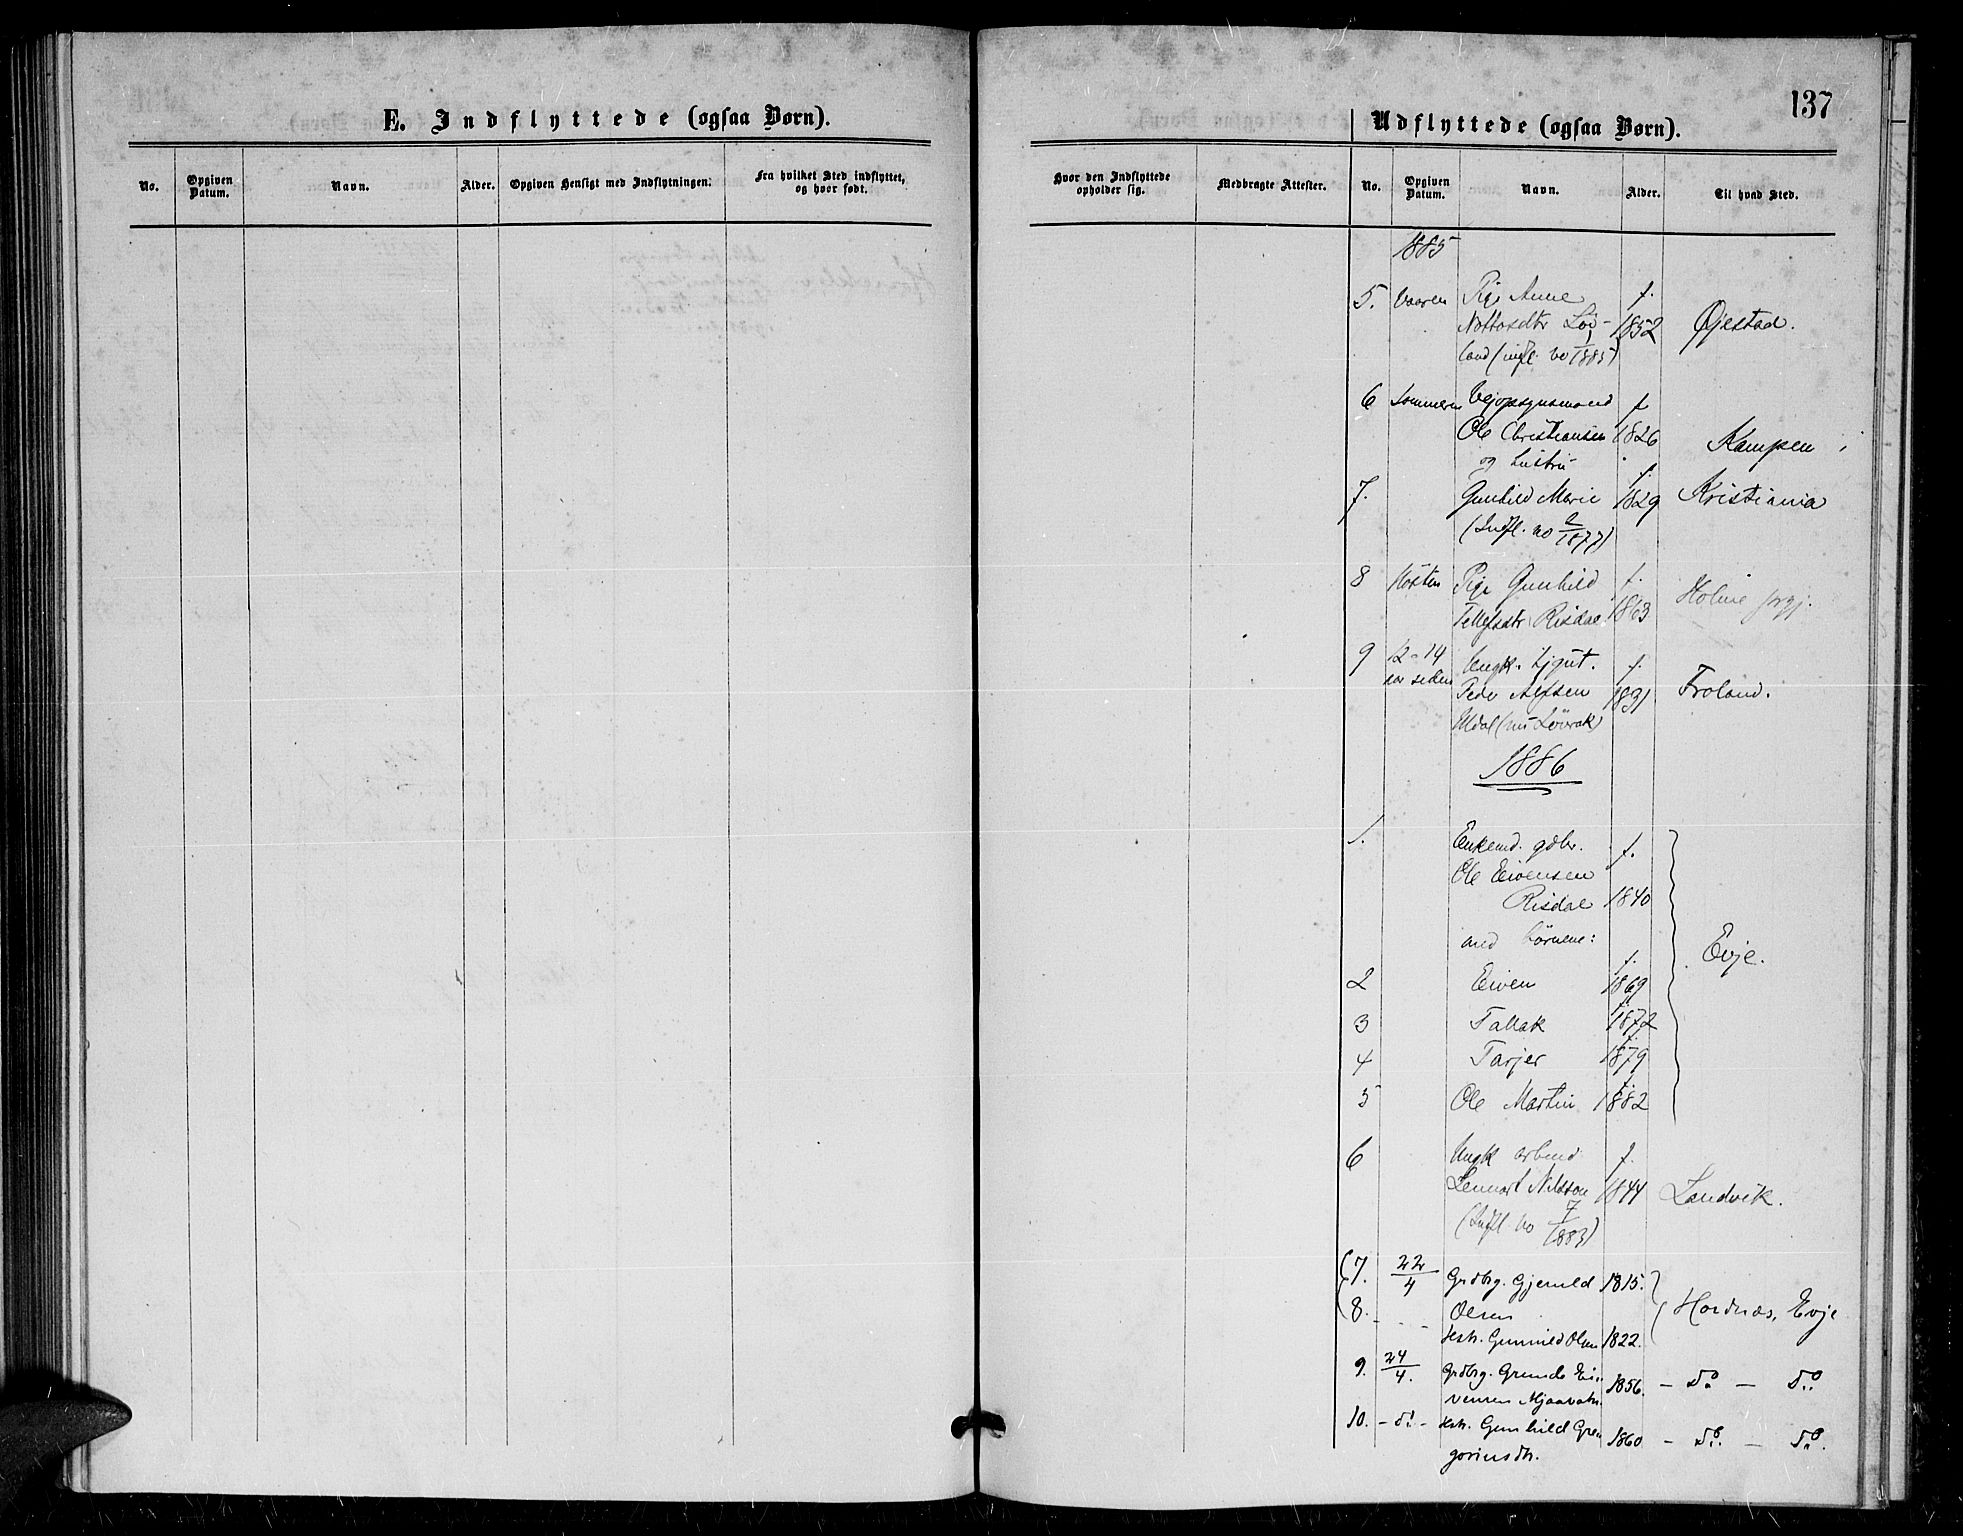 E. Indflyttede (ogsaa Børn).
No.
Opgiven Datum.
Navn.
Alder.
Opgiven Hensigt med Indflytningen.
Fra hvilket Sted indflyttet, og hvor født.
137
Udflyttede (ogsaa Børn).
Hvor den Indflyttede opholder sig.
Medbragte Attester.
No.
Opgiven Datum.
Navn.
Alder.
Til hvad Sted.
1885
5. Vaaren Pige Anne f.
1852 Øjestad.
land (indfl. no 1/1885)
6 Sommeren Vejopsynsmand f
Ole Christiansen 1826 Kampen i
og hustru f.
7. Gunhild Marie 1829 Kristiania
(Indfl. no 2/1877)
8 Høsten Pige Gunhild f.
Tellefsdtr Risdal 1863 Holme prgj.
9 12-14 Ungk. f.
aar siden Peder Alfsen 1831 Froland.
Uldal (nu Løvrak)
1886
1. Enkemd. gdbr. f.
Ole Eivensen
Risdal 1840
med børnene: Evje.
2 Eiven f. 1869
3 Tallak f. 1872
4 Tarjer f. 1879
5 Ole Martin f. 1882
6 Ungk arbmd f.
Lennart Nilsson 1844 Landvik.
(Indfl. no 7/1883)
7. 22/4 Grdbrg. Gjeruld 1815.
8. - - - Olsen Hordnæs, Evje
Hstr. Gunnild Olsen 1822.
9. 24/4. Grdbrg. Grunde Ei-
vensen Mjaavatn. 1856. - do - do
10. - do - Hstr. Gunhild Gre
goriusdtr. 1860 - do - do.